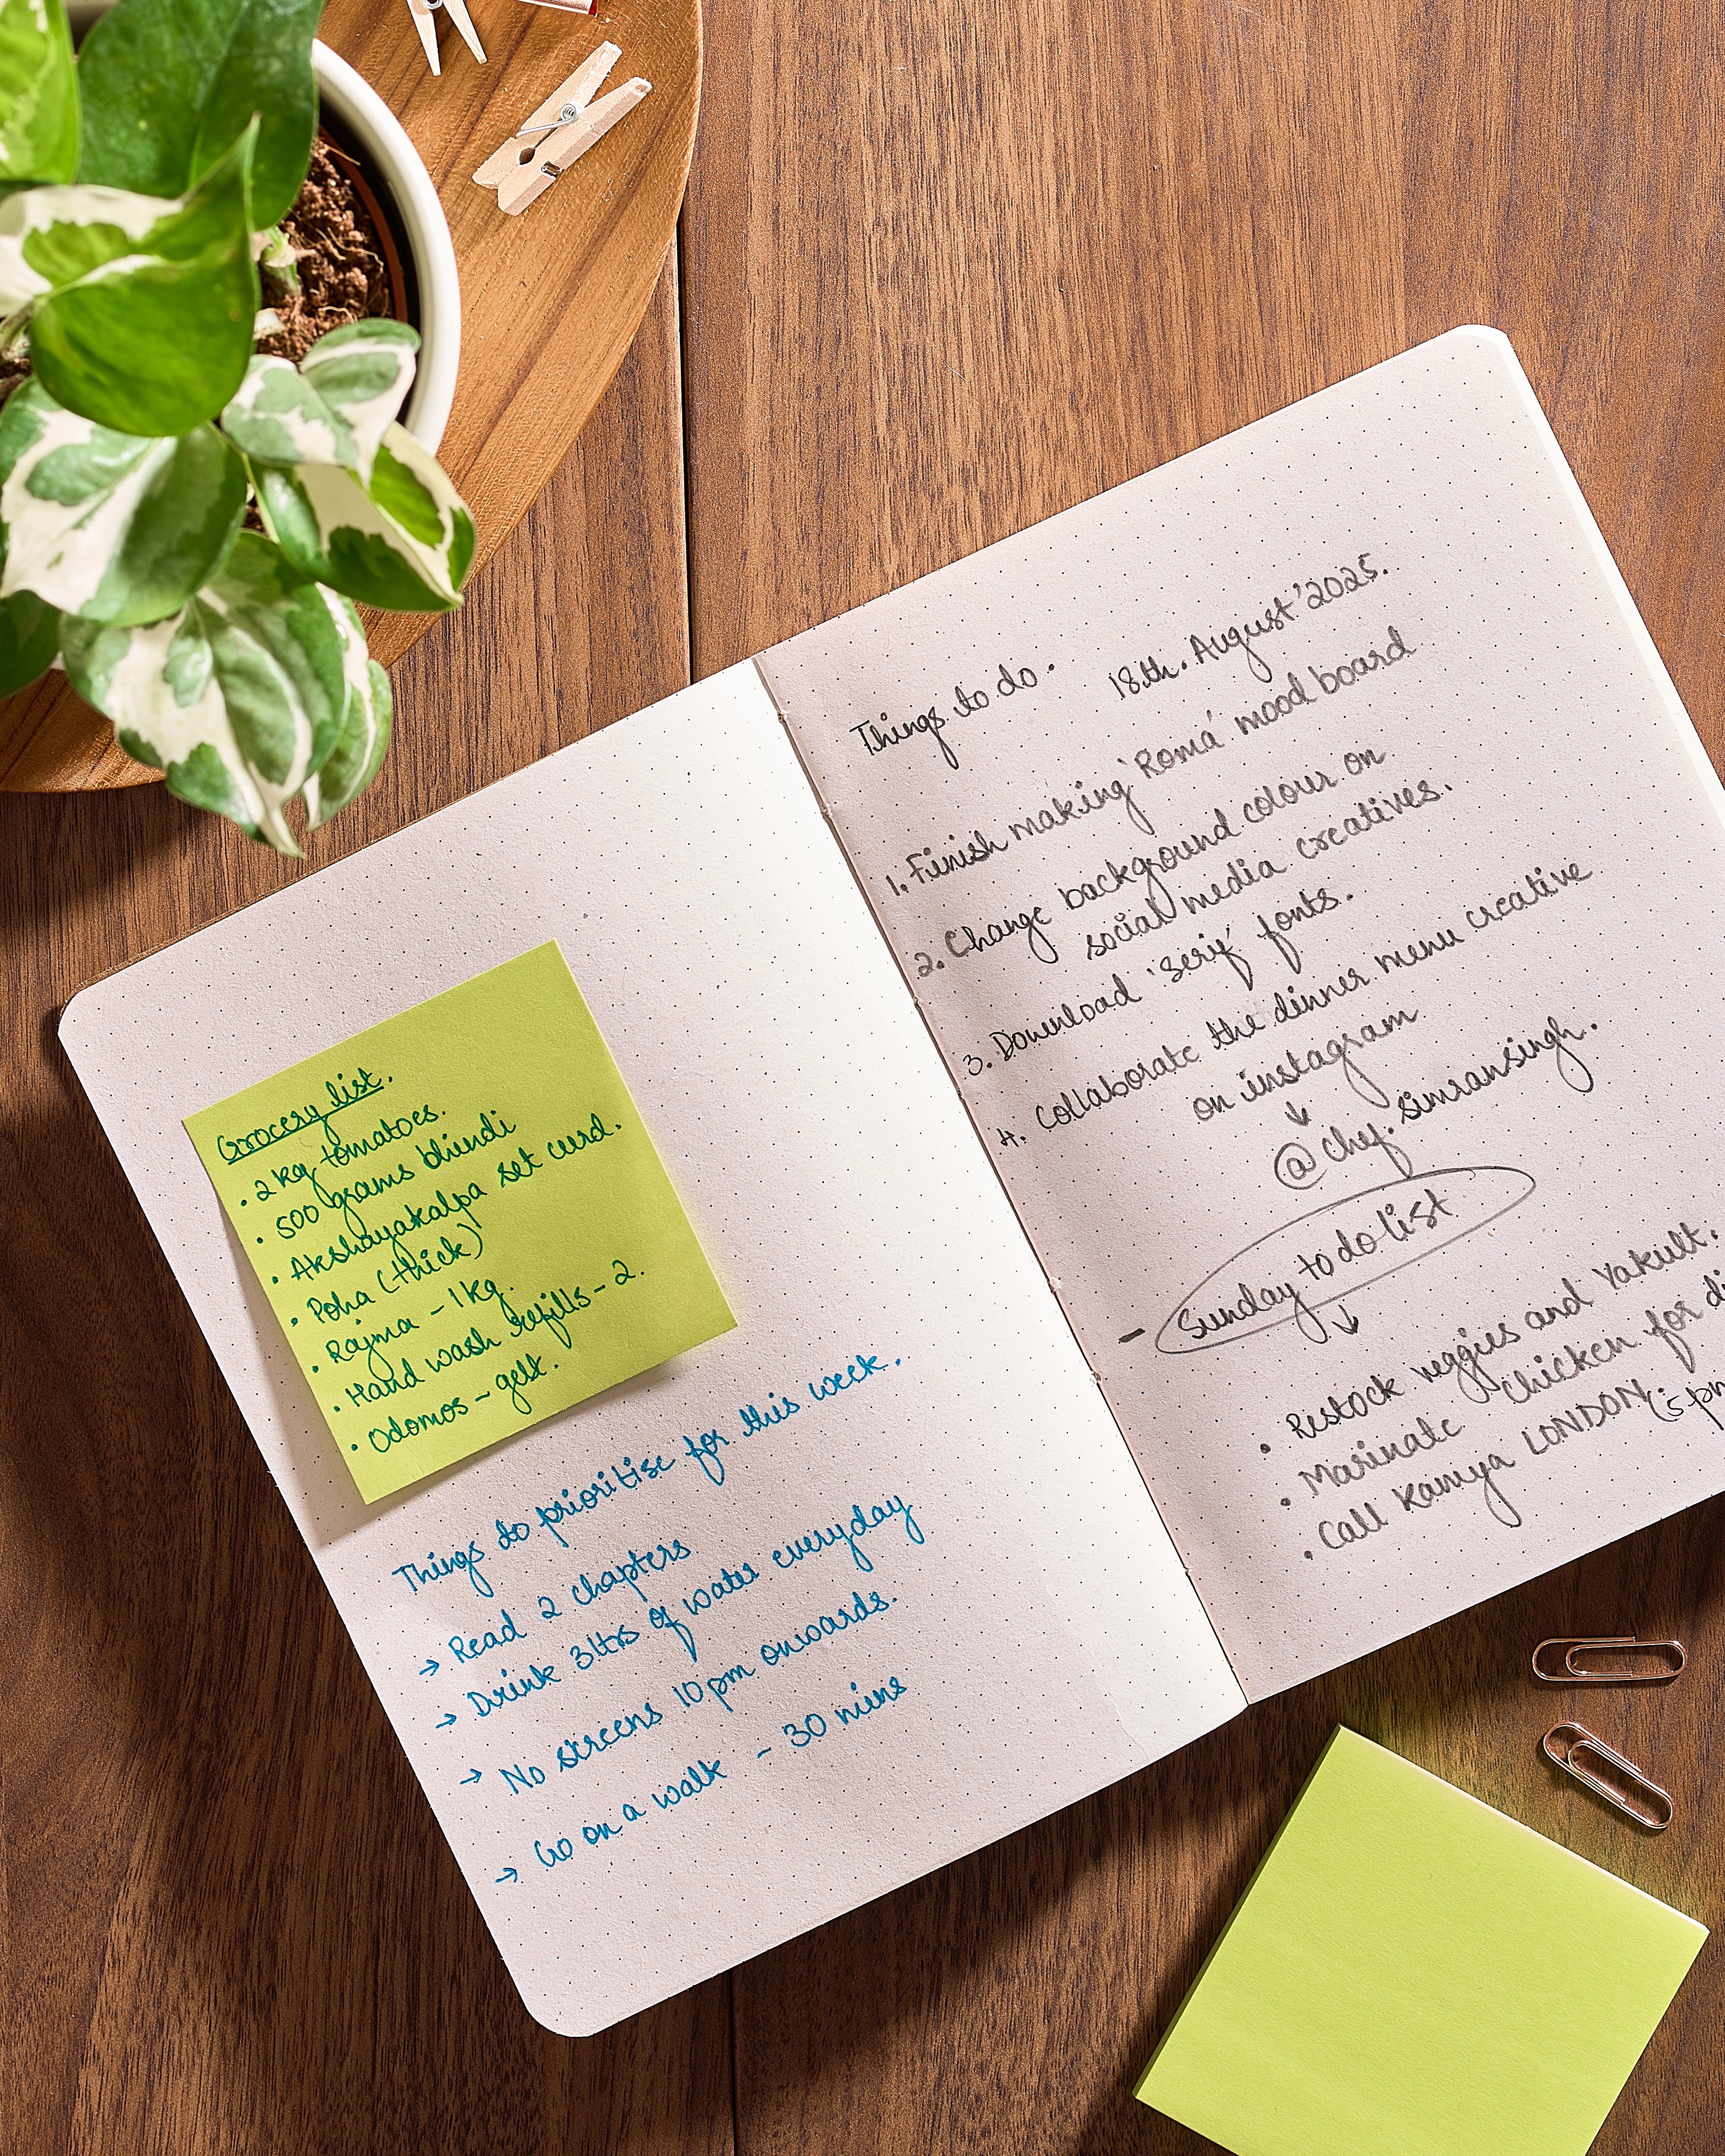 Grocery list.
. 2 kg tomatoes.
. 500 grams bhindi
. Akshayakalpa set curd.
. Poha (thick)
. Rajma - 1 kg.
. Hand wash refills - 2.
. Odomos - gel.
Things to prioritise for this week.
→ Read 2 chapters
→ Drink 3ltrs of water everyday
→ No screens 10 pm onwards.
→ Go on a walk - 30 mins
Things to do. 18th. August '2025.
1. Finish making 'Roma' mood board
2. Change background colour on
social media creatives.
3. Download 'serif' fonts.
4. Collaborate the dinner menu creative
on instagram
↓
@chef.simransingh.
- Sunday to do list
↓
. Restock veggies and Yakult.
. Marinate Chicken for di
. Call Kamya LONDON (5 pm